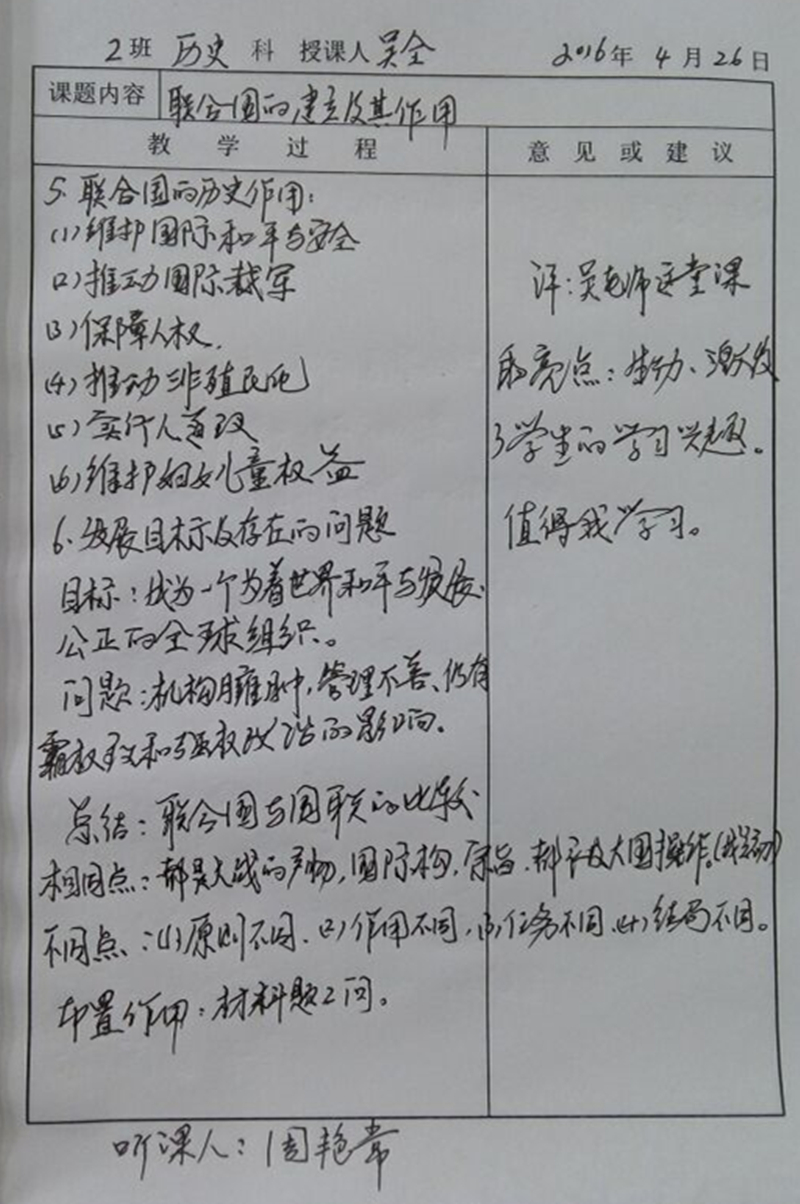 2班 历史 科 授课人 吴全 2016年 4月26日
课题内容 联合国的建立及其作用
教学过程 意见或建议
5. 联合国的历史作用：
(1)维护国际和平与安全
(2)推动国际裁军
(3)保障人权.
(4)推动非殖民化
(5)实行人道
(6)维护妇女儿童权益
6. 发展目标及存在的问题
目标：成为一个为着世界和平与发展、
公正的全球组织。
问题：机构臃肿，管理不善、仍有
霸权主义和强权政治的影响.
总结：联合国与国联的比较
相同点：都是大战的产物，国际构，宗旨，都 大国操作。
不同点：(1)原则不同、(2)作用不同，(3)任务不同、(4)结局不同。
布置作用：材料题2问。
评：吴老师这堂课
的亮点：生动、激发
了学生的学习兴趣。
值得我学习。
听课人：周艳常